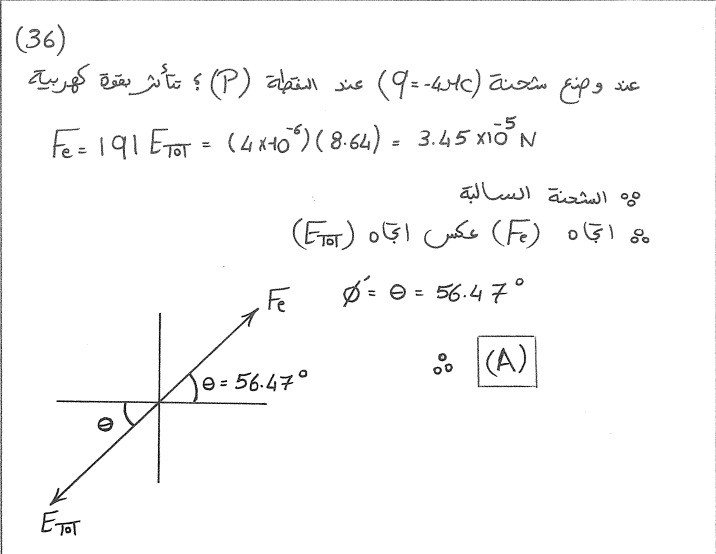 (36)
عند وضع شحنة (q=-4μc) عند النقطة (P) ؟ تتأثر بقوة كهربية
Fe = |q| E_TOT = (4×10⁻⁶)(8.64) = 3.45×10⁻⁵ N
∵ الشحنة السالبة
∴ اتجاه (Fe) عكس اتجاه (E_TOT)
Ø′ = θ = 56.47°
∴ (A)
Fe
θ = 56.47°
θ
E_TOT